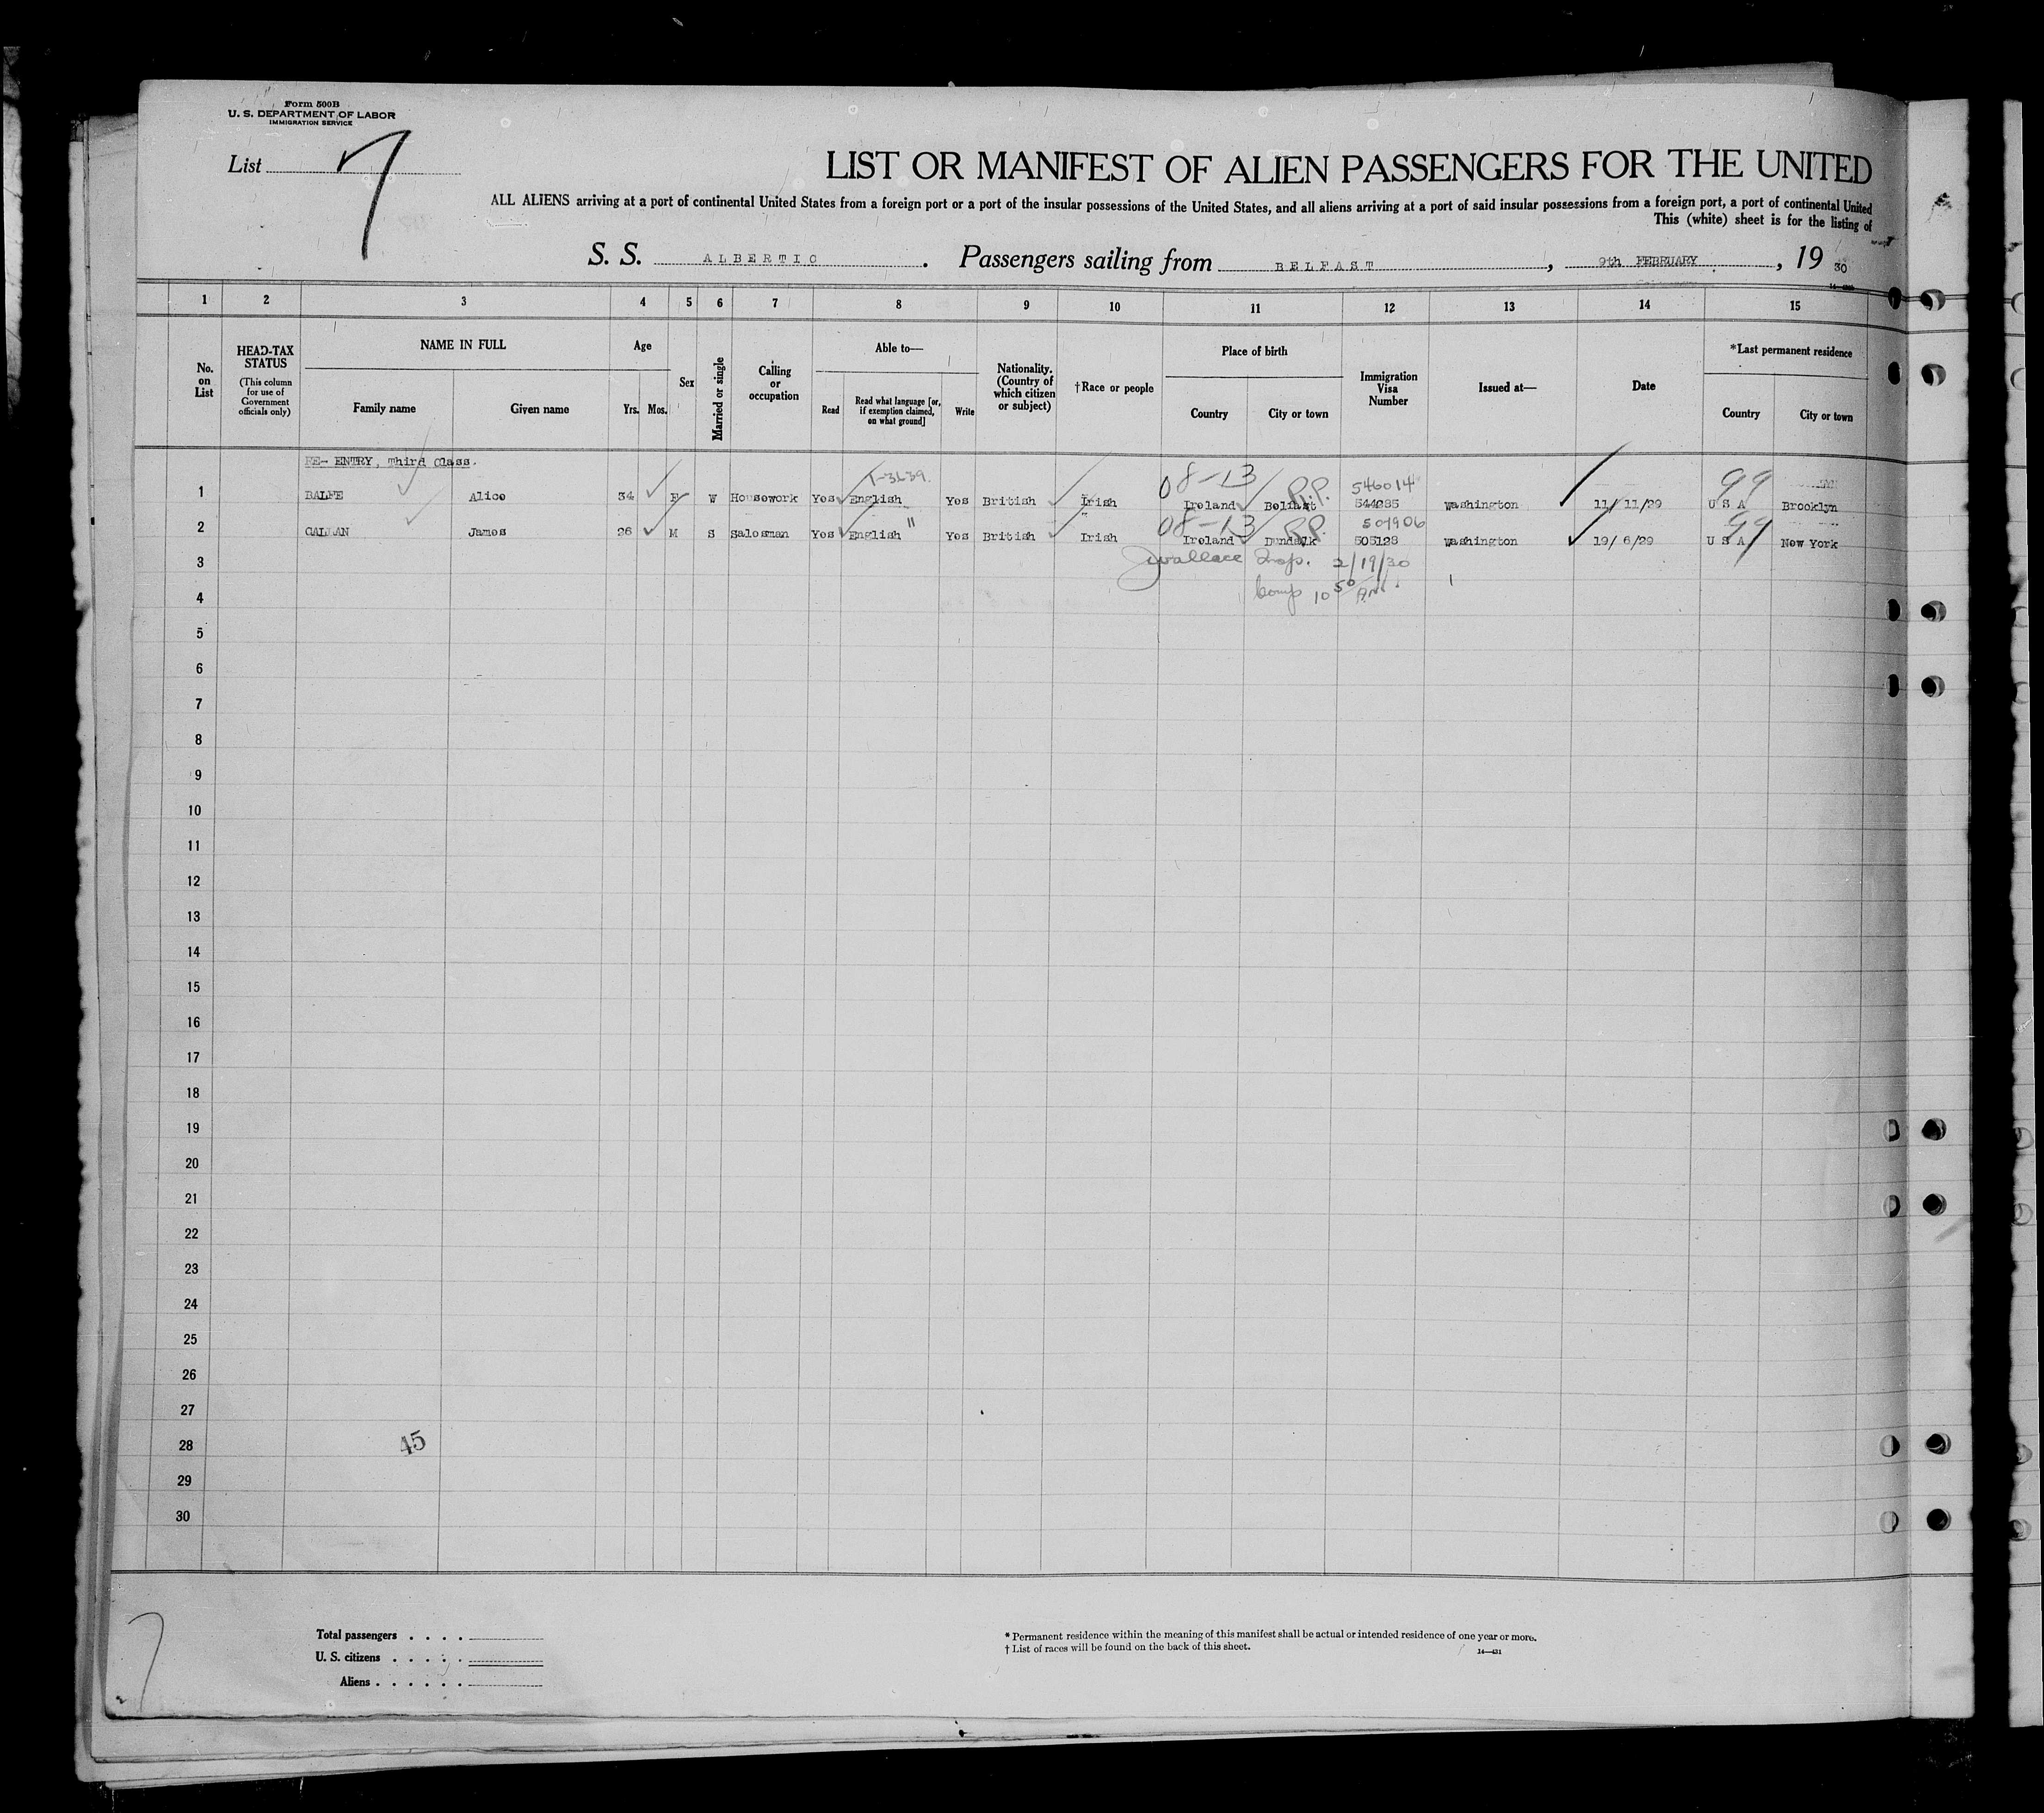 Form 500B
U. S. DEPARTMENT OF LABOR
IMMIGRATION SERVICE
List 7
LIST OR MANIFEST OF ALIEN PASSENGERS FOR THE UNITED
ALL ALIENS arriving at a port of continental United States from a foreign port or a port of the insular possessions of the United States, and all aliens arriving at a port of said insular possessions from a foreign port, a port of continental United
This (white) sheet is for the listing of
S. S. ALBERTIC. Passengers sailing from BELFAST, 9th FEBRUARY, 19 30
1 2 3 4 5 6 7 8 9 10 11 12 13 14 15
No. on List
HEAD-TAX STATUS
(This column for use of Government officials only)
NAME IN FULL
Family name Given name
Age
Yrs. Mos.
Sex
Married or single
Calling or occupation
Able to—
Read Read what language [or, if exemption claimed, on what ground] Write
Nationality. (Country of which citizen or subject)
†Race or people
Place of birth
Country City or town
Immigration Visa Number
Issued at—
Date
*Last permanent residence
Country City or town
RE- ENTRY, Third Class.
08-13 P.P. 546014 99
1 BALFE Alice 34 F W Housework Yes English Yes British Irish Ireland Belfast Washington 11/ 11/29 U S A Brooklyn
08-13 P.P. 501906 99
2 CALLAN James 26 M S Salesman Yes English " Yes British Irish Ireland Dundalk 505128 Washington 19/ 6/29 U S A New York
3 Wallace Insp. 2/19/30
4 Comp 10 50 AM
5
6
7
8
9
10
11
12
13
14
15
16
17
18
19
20
21
22
23
24
25
26
27
28 45
29
30
7
Total passengers
U. S. citizens
Aliens
* Permanent residence within the meaning of this manifest shall be actual or intended residence of one year or more.
† List of races will be found on the back of this sheet.
14—431